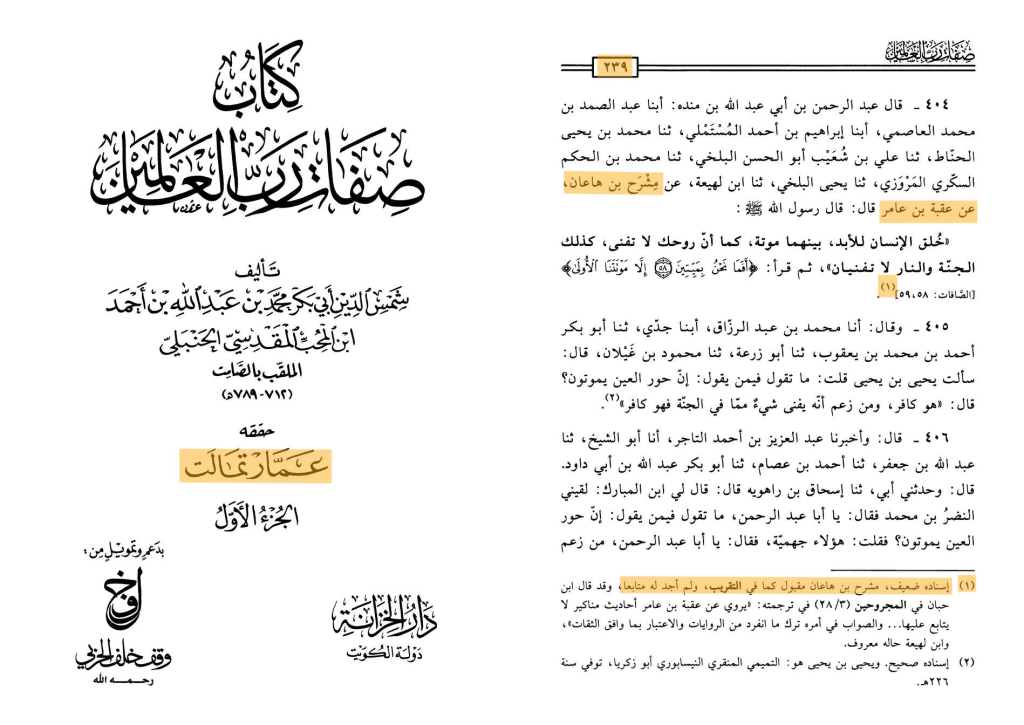 كتاب
صفات رب العالمين
تأليف
شمس الدين أبي بكر محمد بن عبد الله بن أحمد
ابن المحب المقدسي الحنبلي
الملقب بالصامت
(٧١٢-٧٨٩ه)
حققه
عمار تمالت
الجزء الأول
بدعم وتمويل من:
وقف خلف الحربي
رحمه الله
دار الخزانة
دولة الكويت
صفات رب العالمين
٢٣٩
٤٠٤ ـ قال عبد الرحمن بن أبي عبد الله بن منده: أبنا عبد الصمد بن
محمد العاصمي، أبنا إبراهيم بن أحمد المُسْتَمْلي، ثنا محمد بن يحيى
الحنّاط، ثنا علي بن شُعَيْب أبو الحسن البلخي، ثنا محمد بن الحكم
السكّري المَرْوَزي، ثنا يحيى البلخي، ثنا ابن لهيعة، عن مِشْرَح بن هاعان،
عن عقبة بن عامر قال: قال رسول الله ﷺ:
«خُلق الإنسان للأبد، بينهما موتة، كما أنّ روحك لا تفنى، كذلك
الجنّة والنار لا تفنيان»، ثم قرأ: ﴿أَفَمَا نَحْنُ بِمَيِّتِينَ ٥٨ إِلَّا مَوْتَتَنَا الْأُولَى﴾
[الصَّافات: ٥٨، ٥٩](١).
٤٠٥ ـ وقال: أنا محمد بن عبد الرزّاق، أبنا جدّي، ثنا أبو بكر
أحمد بن محمد بن يعقوب، ثنا أبو زرعة، ثنا محمود بن غَيْلان، قال:
سألت يحيى بن يحيى قلت: ما تقول فيمن يقول: إنّ حور العين يموتون؟
قال: «هو كافر، ومن زعم أنّه يفنى شيءٌ ممّا في الجنّة فهو كافر»(٢).
٤٠٦ ـ قال: وأخبرنا عبد العزيز بن أحمد التاجر، أنا أبو الشيخ، ثنا
عبد الله بن جعفر، ثنا أحمد بن عصام، ثنا أبو بكر عبد الله بن أبي داود.
قال: وحدثني أبي، ثنا إسحاق بن راهويه قال: قال لي ابن المبارك: لقيني
النضرُ بن محمد فقال: يا أبا عبد الرحمن، ما تقول فيمن يقول: إنّ حور
العين يموتون؟ فقلت: هؤلاء جهميّة، فقال: يا أبا عبد الرحمن، من زعم
(١) إسناده ضعيف، مشرح بن هاعان مقبول كما في التقريب، ولم أجد له متابعا، وقد قال ابن
حبان في المجروحين (٢٨/٣) في ترجمته: «يروي عن عقبة بن عامر أحاديث مناكير لا
يتابع عليها... والصواب في أمره ترك ما انفرد من الروايات والاعتبار بما وافق الثقات»،
وابن لهيعة حاله معروف.
(٢) إسناده صحيح. ويحيى بن يحيى هو: التميمي المنقري النيسابوري أبو زكريا، توفي سنة
٢٢٦هـ.